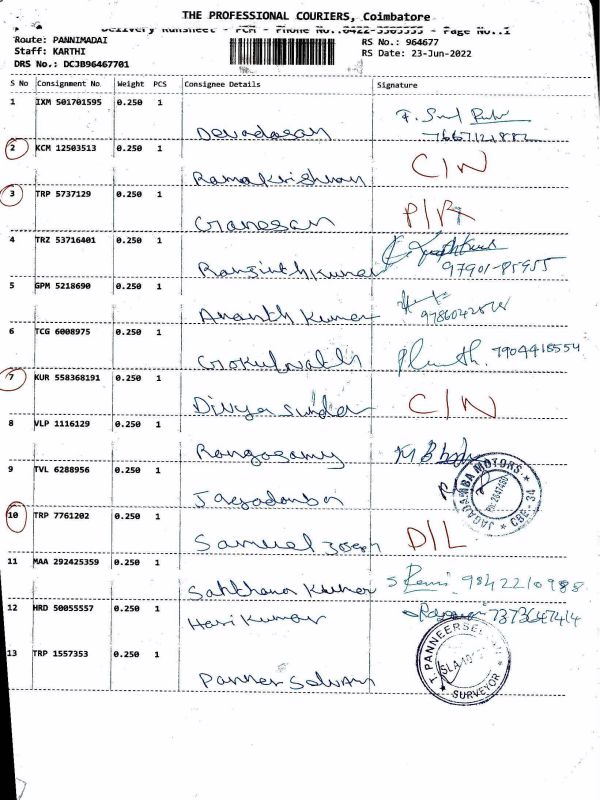 THE PROFESSIONAL COURIERS, Coimbatore
Delivery Runsheet - PCM - Phone No.:0422-3505555 - Page No.:1
Route: PANNIMADAI
Staff: KARTHI
DRS No.: DCJB96467701
RS No.: 964677
RS Date: 23-Jun-2022
S No Consignment No Weight PCS Consignee Details Signature
1 IXM 501701595 0.250 1 Devadasan
7667121882
2 KCM 12503513 0.250 1 Ramakrishnan C/N
3 TRP 5737129 0.250 1 Ganesan P/R
4 TRZ 53716401 0.250 1 Ranjinthkumar
97901-85955
5 GPM 5218690 0.250 1 Ananth kumar
6 TCG 6008975 0.250 1 Gokulnath 7904418554
7 KUR 558368191 0.250 1 Divya Sundar C/N
8 VLP 1116129 0.250 1 Rangasamy
9 TVL 6288956 0.250 1 Jagadamba
JAGADAMBA MOTORS. CBE-34
10 TRP 7761202 0.250 1 Samuel D/L
11 MAA 292425359 0.250 1 Sakthana Kumar S Rani 9842210988
12 HRD 50055557 0.250 1 Hari Kumar 7373647414
13 TRP 1557353 0.250 1 Panner Selvam
T. PANNEERSELVAM
SURVEYOR